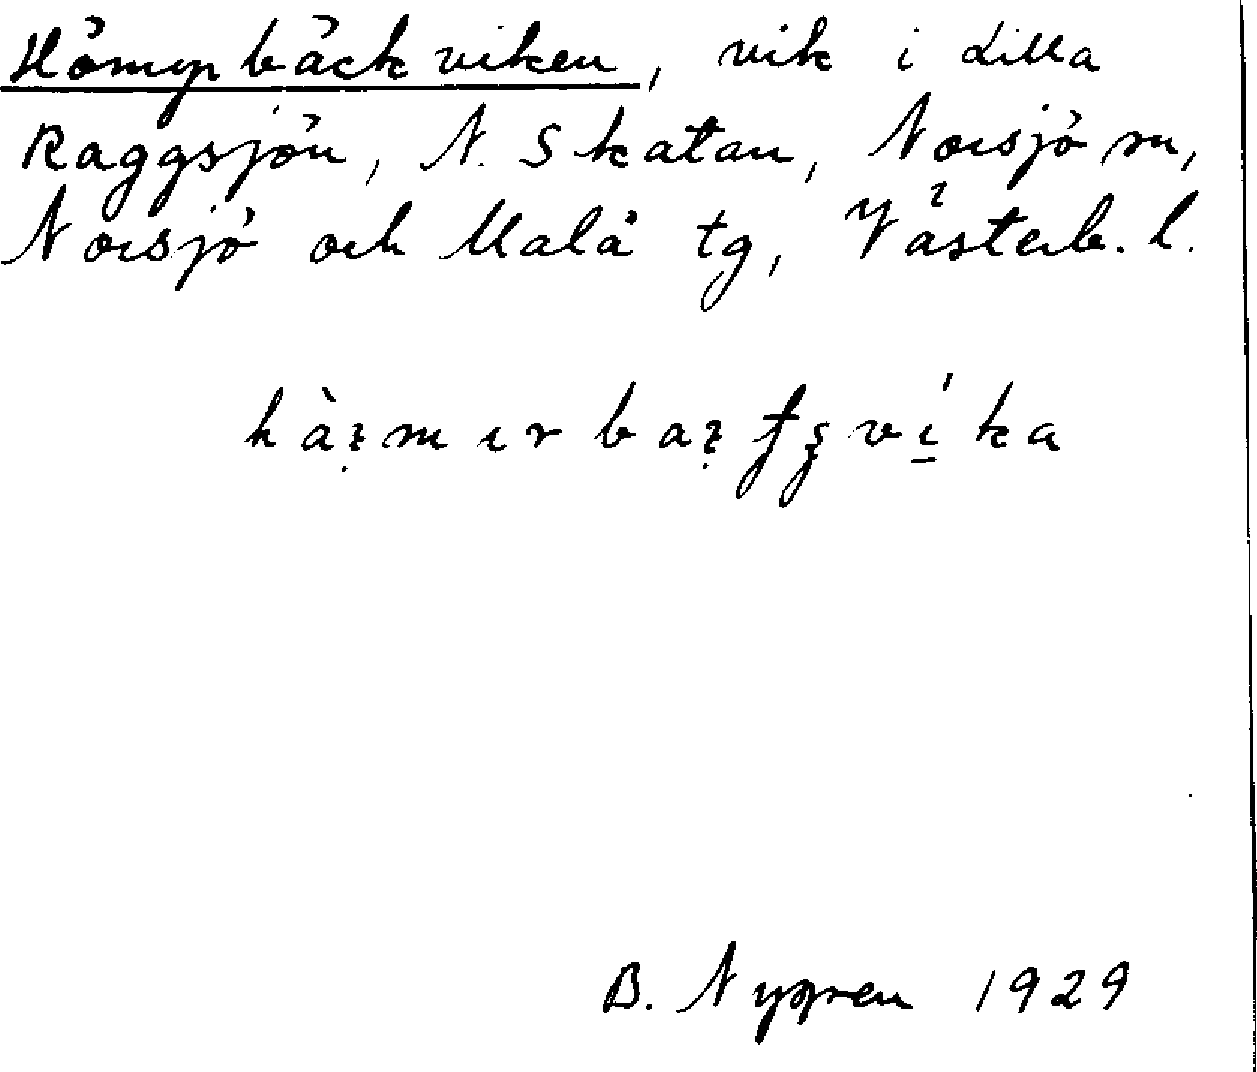 Hömyrbäckviken, vik i Lilla
Raggsjön, N. Skatan, Norsjö sn,
Norsjö och Malå tg, Västerb. l.
B. Nygren 1929